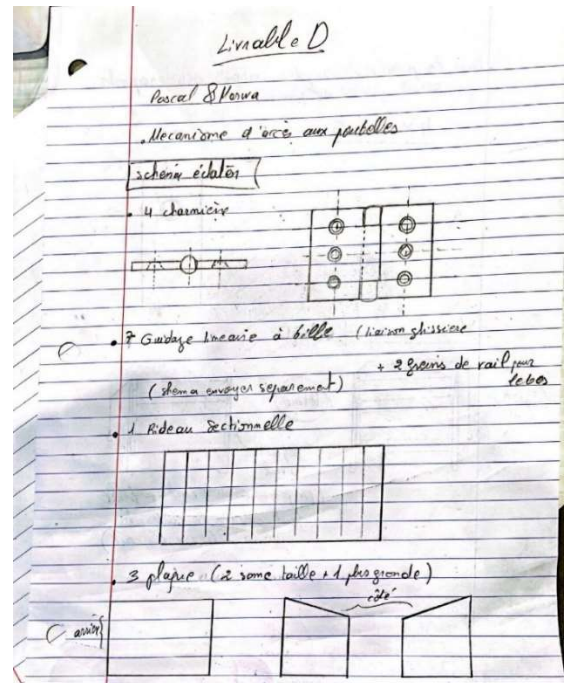 Livrable D
Pascal & Marwa
. Mecanisme d'accès aux poubelles
schéma éclatér
• 4 charnière
• 7 Guidage lineaire à bille (liaison glissiere
+ 2 de rail pour le bas
(shema envoyer separement)
• 1 Rideau Sectionnelle
• 3 plaque (2 same taille + 1 plus grande)
côté
arrière